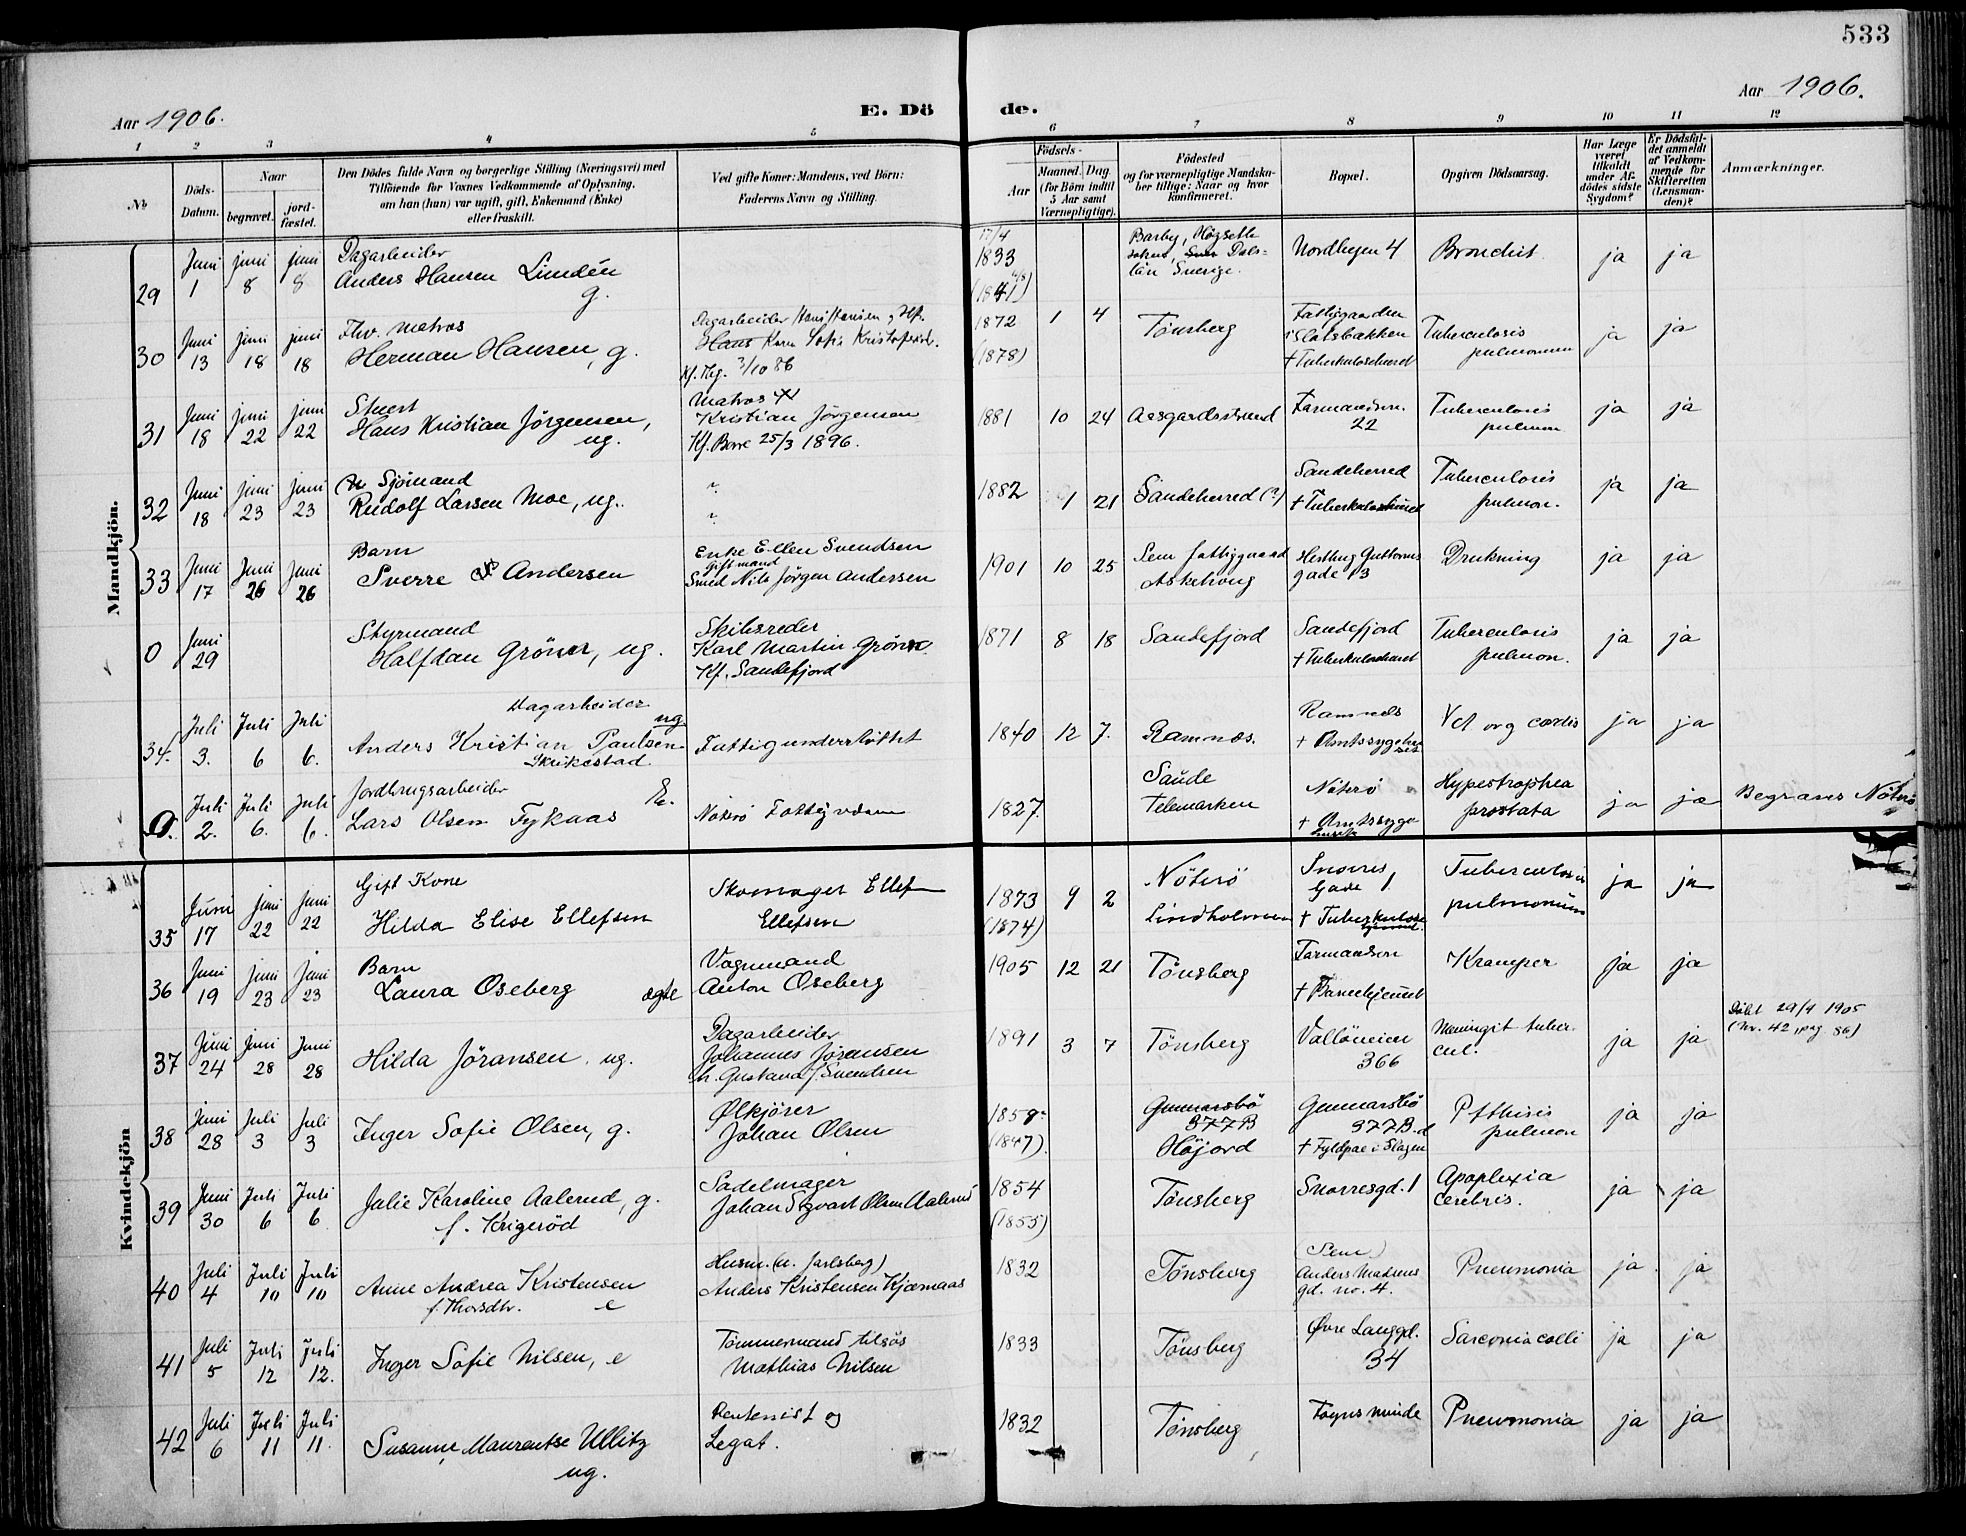 533
Aar 1906.
E. Dö de.
Aar 1906.
1 2 3 4 5 6 7 8 9 10 11 12
No
Döds-Datum.
Naar
begravet.
jord-fæstet.
Den Dödes fulde Navn og borgerlige Stilling (Næringsvei) med
Tilföiende for Voxnes Vedkommende af Oplysning,
om han (hun) var ugift, gift, Enkemand (Enke)
eller fraskilt.
Ved gifte Koner: Mandens, ved Börn:
Faderens Navn og Stilling.
Födsels-
Aar
Maaned. Dag.
(for Börn indtil
5 Aar samt
Værnepligtige).
Födested
og for værnepligtige Mandska-
ber tillige: Naar og hvor
konfirmeret.
Bopæl.
Opgiven Dödsaarsag.
Har Læge
været
tilkaldt
under Af-
dödes sidste
Sygdom?
Er Dödsfal-
det anmeldt
af Vedkom-
mende for
Skifteretten
(Lensman-
den)?
Anmærkninger.
Mandkjön.
29 Juni 1 juni 8 juni 8 Dagarbeider
Anders Hansen Lindén g.
17/4 1833 (1841) Barby, Högsetle Dals-
län Sverige. Nordbyen 4 Bronchit ja ja
30 Juni 13 juni 18 juni 18 Fhv. Matros
Herman Hansen, g.
Dagarbeider Hans Hansen
Karen Sofie
Kf. Tbg. 3/10 86
1872 (1878) 1 4 Tönsberg Fattiggaarden
i Slotsbakken
† Tuberkulosehuset Tuberculosis
pulmonum ja ja
31 Juni 18 juni 22 juni 22 Stuert
Hans Kristian Jörgensen, ug.
Matros
Kristian Jörgensen
Kf. Borre 25/3 1896.
1881 10 24 Aasgardsstrand Farmandsv. 22 Tuberculosis
pulmon ja ja
32 Juni 18 juni 23 juni 23 Sjömand
Rudolf Larsen Moe, ug.
1882 1 21 Sandeherred (?) Sandeherred
† Tuberkulosehuset Tuberculosis
pulmon. ja ja
33 Juni 17 Juni 26 Juni 26 Barn
Sverre Andersen
Enke Ellen Svendsen
Gift mand
Smed Nils Jörgen Andersen
1901 10 25 Sem fattiggaard
Askehoug Herthug Guttorms
gade 13 Drukning ja ja
0 Juni 29 Styrmand
Halfdan Gröner, ug.
Skibsreder
Karl Martin Gröner
Kf. Sandefjord
1871 8 18 Sandefjord Sandefjord
† Tuberkulosehuset Tuberculosis
pulmon. ja ja
34. Juli 3. Juli 6 Juli 6. Dagarbeider ug.
Anders Kristian Paulsen
Skrikestad
Fattigunderstöttet
1840 12 7. Ramnæs. Ramnes
† Amtssygehuset Vit org cordis ja ja
0. Juli 2. Juli 6. Juli 6. Jordbrugsarbeider E.
Lars Olsen Fykaas
Nöterö Fattigvæsen
1827. Saude
Telemarken Nöterö
† Amtssyge
huset Hypertrophia
prostata ja ja Begraves Nöterö
Kvindekjön
35 Juni 17 juni 22 juni 22 Gift Kone
Hilda Elise Ellefsen
Skomager Ellef
Ellefsen
1873 (1874) 9 2 Nöterö
Lindholmen Snorres
Gade 1.
† Tuberkulose
hjemmet. Tuberculosis
pulmonum ja ja
36 Juni 19 juni 23 juni 23 Barn
Laura Oseberg ægte
Vognmand
Anton Oseberg
1905 12 21 Tönsberg Farmandsv
† Barnehjemmet Kramper ja ja
Döbt 29/4 1905
(Nr. 42, pag. 86)
37 Juni 24 juni 28 Juni 28 Hilda Jöransen, ug.
Dagarbeider
Johannes Jöransen
h. Gustava f. Svendsen
1891 3 7 Tönsberg Vallöveien
366 Meningit tuber-
cul. ja ja
38 juni 28 Juli 3 Juli 3 Inger Sofie Olsen, g.
Ølkjörer
Johan Olsen
1858 (1847). Gunnarsbö
377B
Höjord Gunnarsbö
377B
† Fyldpaa i Slagen Pfthisis
pulmon ja ja
39 Juni 30 Juli 6 Juli 6 Julie Karoline Aalerud, g.
f. Krigeröd
Sadelmager
Johan Sigvart Olsen Aalerud
1854 (1855) Tönsberg Snorresgd. 1 Apoplexia
Cerebris. ja ja
40 Juli 4 Juli 10 Juli 10 Anne Andrea Kristensen
f. Thorsdtr. e
Husm. (u. Jarlsberg)
Anders Kristensen Kjærnaas
1832 Tönsberg (Sem)
Anders Madsens
gd. no. 4. Pneumonia ja ja
41 Juli 5 Juli 12 Juli 12. Inger Sofie Nilsen, e
Tömmermand tilsös
Mathias Nilsen
1833 Tönsberg Øvre Langgd.
34 Sarcomia colli ja ja
42 Juli 6 Juli 11 Juli 11. Susanne Maurentse Ullitz
ug.
Rentenist og
Legat.
1832 Tönsberg Foyns minde Pneumonia ja ja